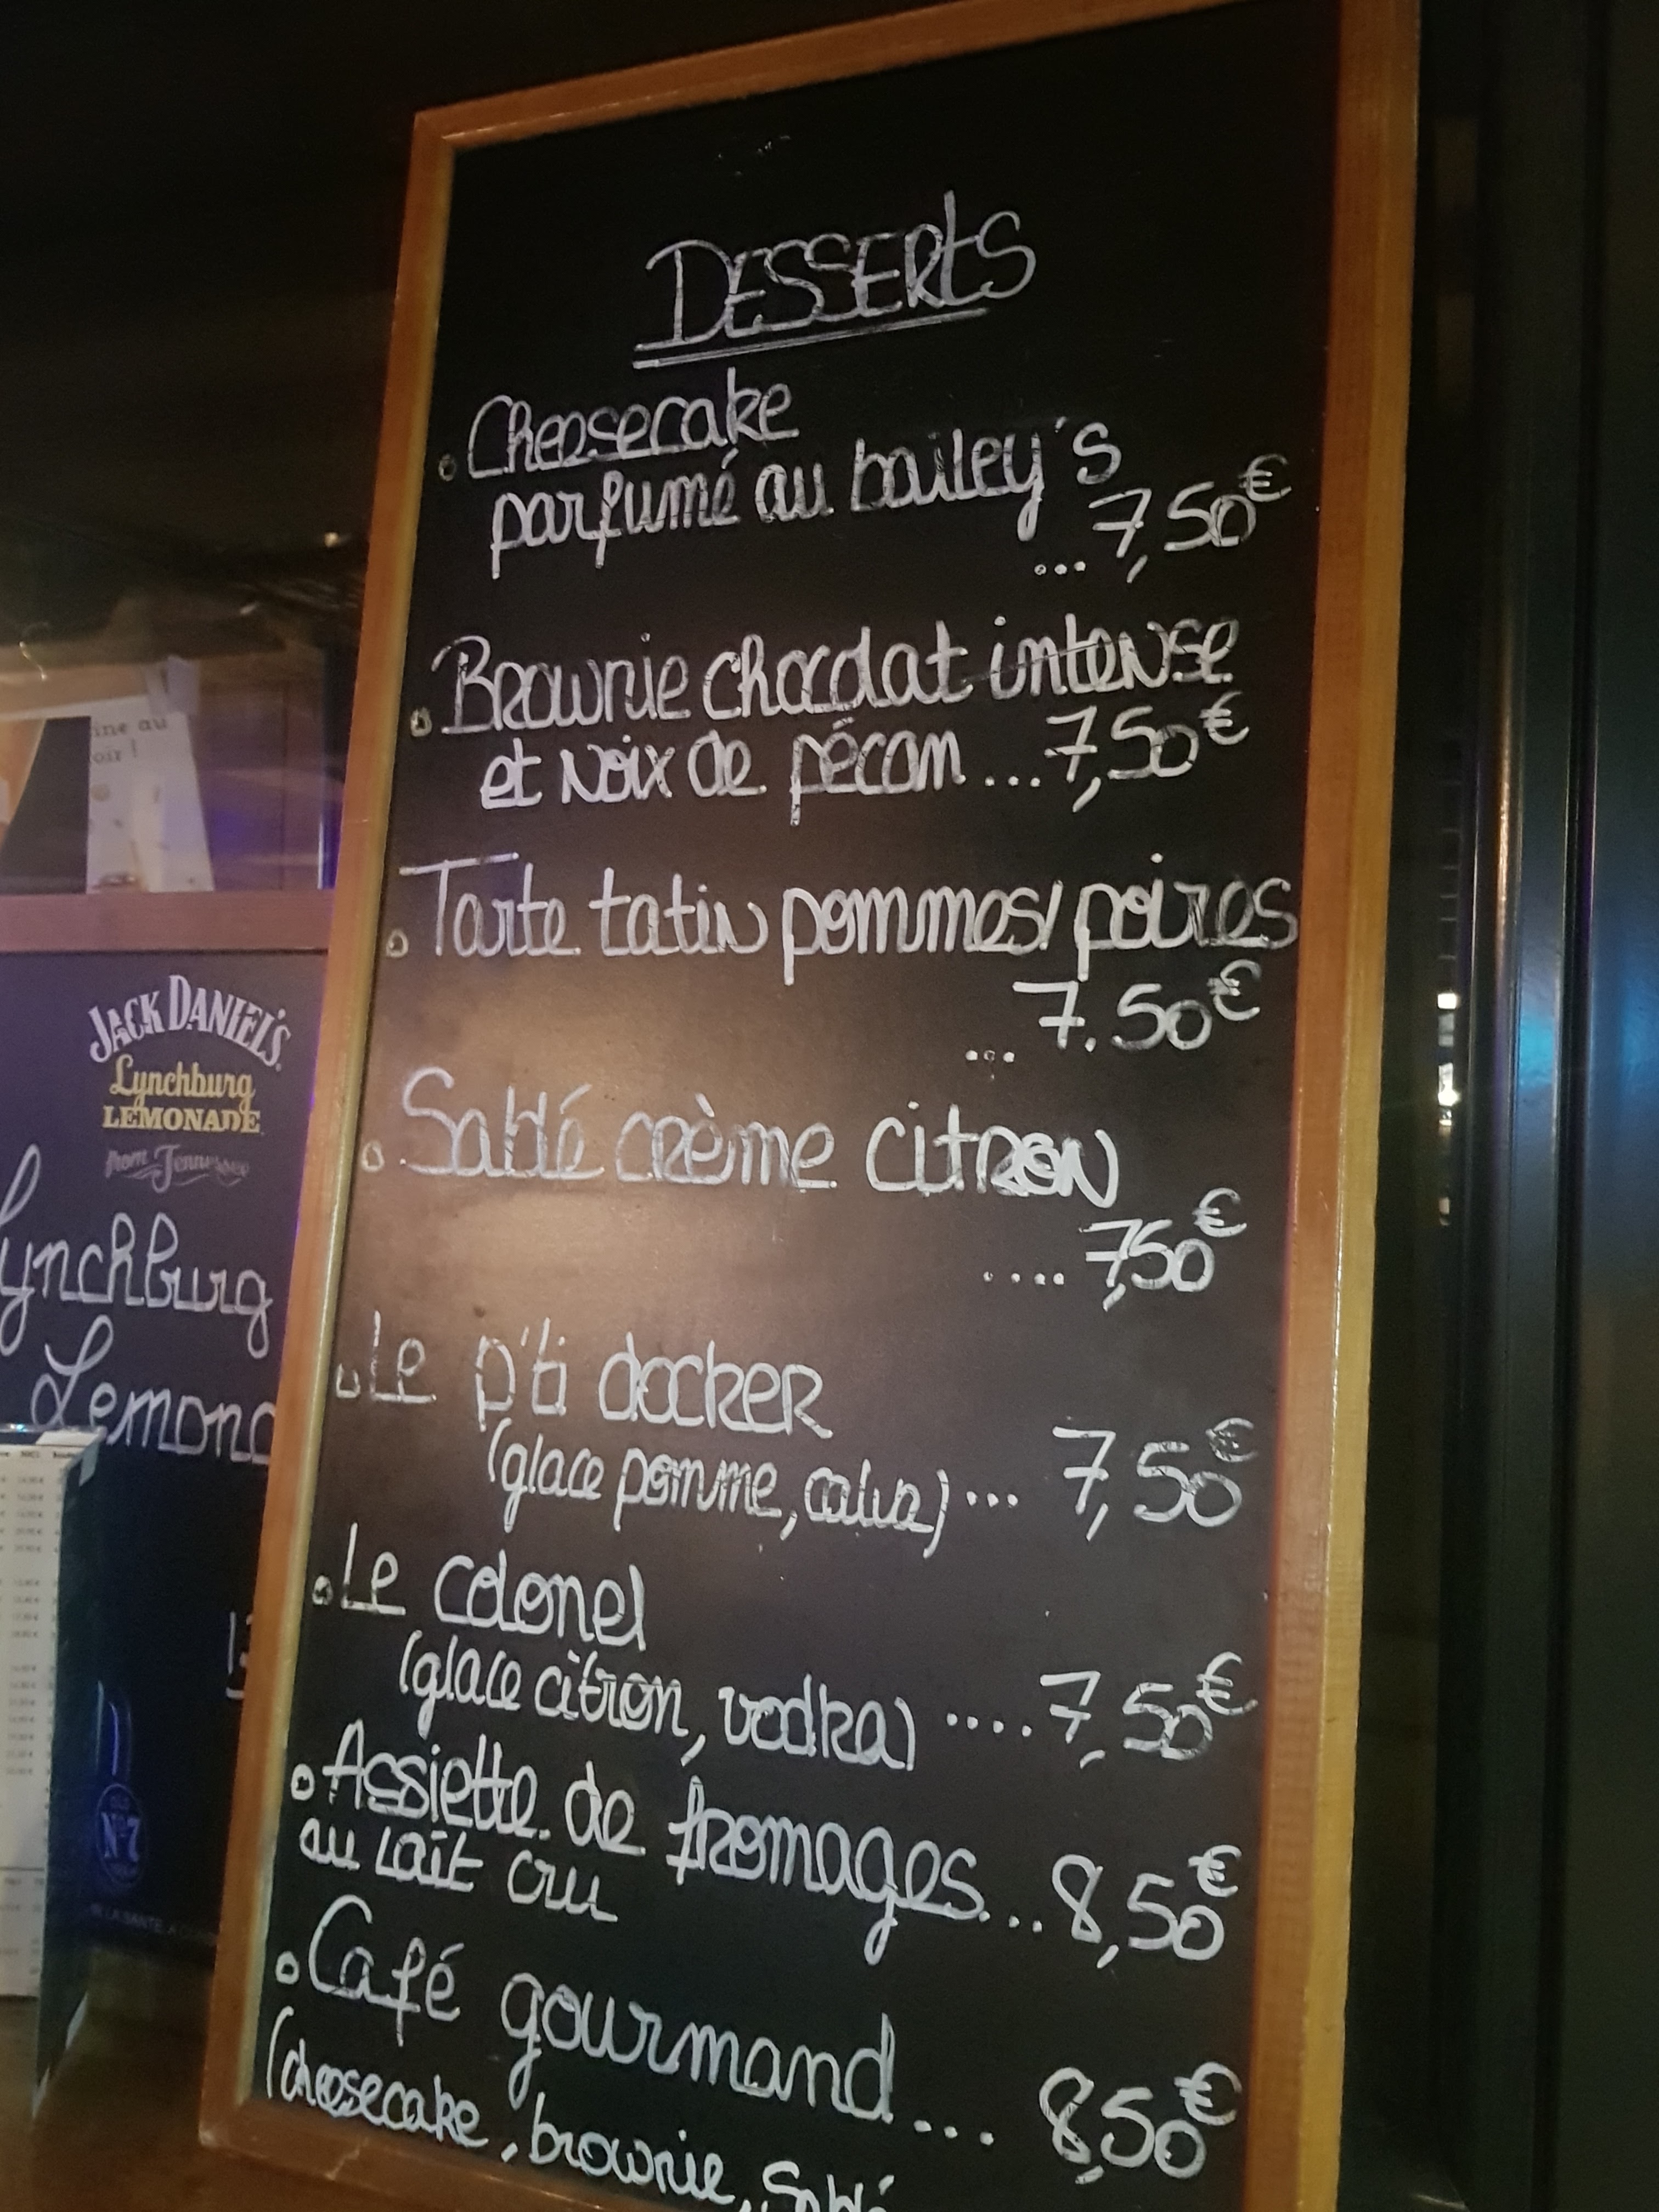 DESSERTS
Cheesecake
parfumé au bailey's
... 7,50€
Brownie chocolat intense
et Noix de pécan ... 7,50€
Tarte tatin pommes/poires
... 7.50€
Sablé crème citron
.... 7,50€
Le p'ti docker
(glace pomme, calva) ... 7,50€
Le colonel
(glace citron, vodka) .... 7,50€
Assiette de fromages ... 8,50€
au lait cru
Café gourmand ... 8,50€
(cheesecake, brownie, Sablé
ine au
oir !
JACK DANIEL'S
Lynchburg
LEMONADE
from Tennessee
ynchburg
Lemona
N°7